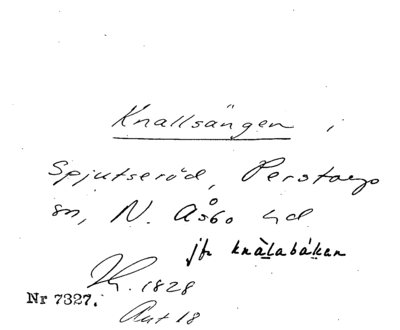 Knallsängen i
Spjutseröd, Perstorps
sn, N. Åsbo hd
jfr knàlabákan
1828
Nr 7327.
Akt 18